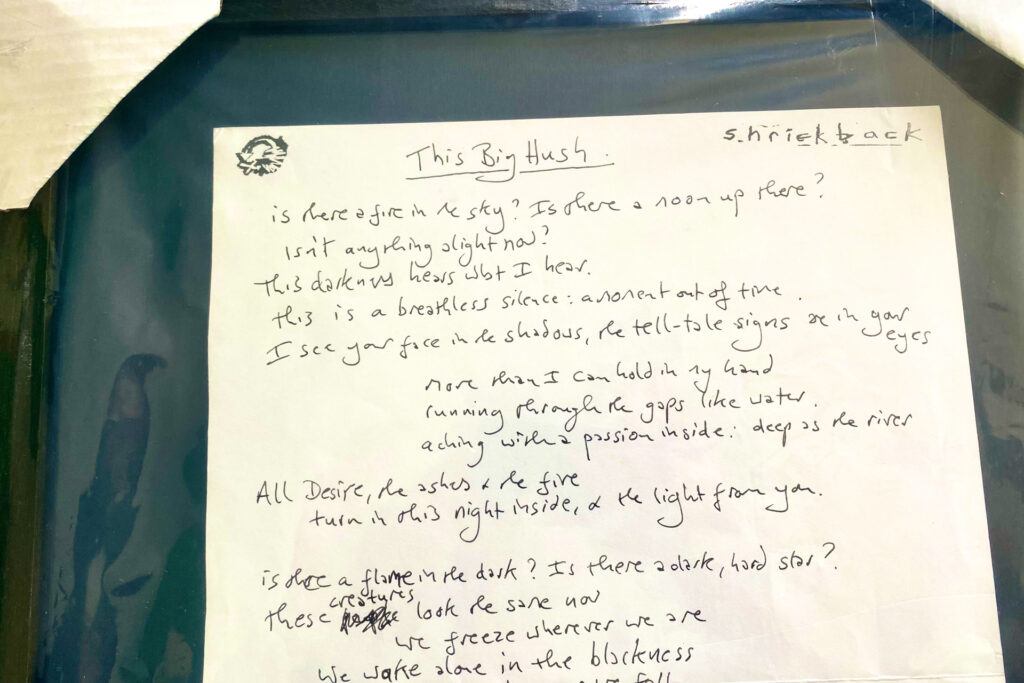 This Big Hush.
s.hriekback
is there a fire in the sky? Is there a moon up there?
Isn't anything alight now?
this darkness hears what I hear.
this is a breathless silence: a moment out of time.
I see your face in the shadows, the tell-tale signs are in your
eyes
more than I can hold in my hand
running through the gaps like water.
aching with a passion inside: deep as the river
All Desire, the ashes & the fire
turn in this night inside, & the light from you.
is there a flame in the dark? Is there a dark, hard star?
creatures
these look the same now
we freeze wherever we are
We wake alone in the blackness
we fall